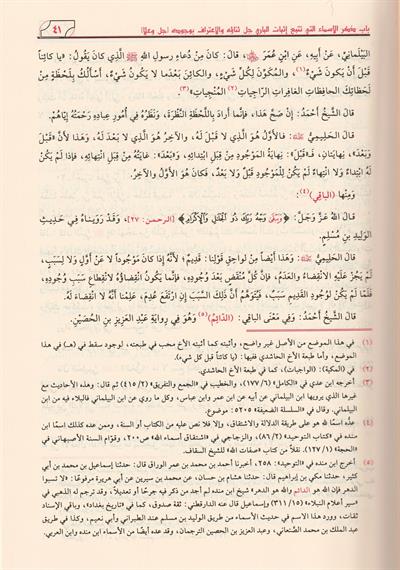 باب ذكر الأسماء التي تتبع إثبات الباري جل ثناؤه والاعتراف بوجوده جل وعلا ٤١
البَيْلَمانِيِّ، عَنْ أَبِيهِ، عَنِ ابْنِ عُمَرَ ﵁، قالَ: كانَ مِنْ دُعاءِ رسولِ اللهِ ﷺ الَّذِي كانَ يَقُولُ: «يا كائِناً
قَبْلَ أَنْ يَكُونَ شَيْءٌ(١)، والمُكَوِّنَ لِكُلِّ شَيْءٍ، والكائِنَ بَعْدَما لا يَكُونُ شَيْءٌ، أَسْأَلُكَ بِلَحْظَةٍ مِنْ
لَحَظاتِكَ الحافِظاتِ الغافِراتِ الرَّاجِياتِ(٢) المُنْجِياتِ»(٣).
قالَ الشَّيْخُ أَحْمَدُ: إِنْ صَحَّ هَذا، فَإِنَّما أَرادَ بِاللَّحْظَةِ النَّظْرَةَ، وَنَظَرُهُ فِي أُمُورِ عِبادِهِ رَحْمَتُهُ إِيَّاهُمْ.
قالَ الحَلِيمِيُّ ﵀: فالأَوَّلُ هُوَ الَّذِي لا قَبْلَ لَهُ، والآخِرُ هُوَ الَّذِي لا بَعْدَ لَهُ، وَهَذا لأَنَّ «قَبْلَ
وَبَعْدَ»، نِهايَتانِ، فَـ«قَبْلَ»: نِهايَةُ المَوْجُودِ مِنْ قِبَلِ ابْتِدائِهِ، و«بَعْدَ»: غايَتُهُ مِنْ قِبَلِ انْتِهائِهِ، فإذا لَمْ يَكُنْ
لَهُ ابْتِداءٌ وَلا انْتِهاءٌ لَمْ يَكُنْ لِلْمَوْجُودِ قَبْلُ وَلا بَعْدُ، فَكانَ هُوَ الأَوَّلُ والآخِرُ
وَمِنْها (الباقِي)(٤):
قالَ اللهُ عَزَّ وَجَلَّ: ﴿وَيَبْقَىٰ وَجْهُ رَبِّكَ ذُو الْجَلَٰلِ وَالْإِكْرَامِ﴾ [الرحمن: ٢٧]، وَقَدْ رَوَيْناهُ فِي حَدِيثِ
الوَلِيدِ بنِ مُسْلِمٍ.
قالَ الحَلِيمِيُّ ﵀: وَهَذا أَيْضاً مِنْ لَواحِقِ قَوْلِنا: قَدِيمٌ؛ لأَنَّهُ إِذا كانَ مَوْجُوداً لا عَنْ أَوَّلٍ ولا لِسَبَبٍ،
لَمْ يَجُزْ عَلَيْهِ الانْقِضاءُ والعَدَمُ، فَإِنَّ كُلَّ مُنْقَضٍ بَعْدَ وُجُودِهِ، فإنَّما يَكُونُ انْقِضاؤُهُ لانْقِطاعِ سَبَبِ وُجُودِهِ،
فَلَمَّا لَمْ يَكُنْ لِوُجُودِ القَدِيمِ سَبَبٌ، فَيُتَوَهَّمَ أَنَّ ذَلِكَ السَّبَبَ إِنِ ارْتَفَعَ عُدِمَ، عَلِمْنا أَنَّهُ لا انْقِضاءَ لَهُ.
قالَ الشَّيْخُ أَحْمَدُ: وَفِي مَعْنَى الباقِي: (الدَّائِمُ)(٥) وَهُوَ فِي رِوايَةِ عَبْدِ العَزِيزِ بنِ الحُصَيْنِ.
(١) في هذا الموضع من الأصل غير واضح، وأثبته كما أثبته الأخ محب في طبعته، لوجود سقط في (هـ) في هذا
الموضع، وأما طبعة الأخ الحاشدي فيها: (يا كائناً قبل كل شيء).
(٢) في (المكية): (الواجبات)، كما في طبعة الأخ الحاشدي.
(٣) أخرجه ابن عدي في «الكامل» (٦/ ١٧٧)، والخطيب في «الجمع والتفريق» (٢/ ٤١٥) ثم قال: وهذه الأحاديث مع
غيرها الذي يرويها ابن البيلماني عن أبيه عن ابن عمر وابن عباس، وكل ما روي عن ابن البيلماني فالبلاء فيه من ابن
البيلماني. وقال في «السلسلة الضعيفة» ٥٢٠٥: موضوع.
(٤) عدَّه اسمًا لله هو على طريقة الدلالة والاشتقاق، وإلا فلا نص عليه من الكتاب أو السنة، وممن عده كذلك اسمًا ابن
منده في «كتاب التوحيد» (٢/ ٨٦)، والزجاجي في «اشتقاق أسماء الله» ص٢٠٠، وقوّام السنة الأصبهاني في
«الحجة» (١/ ١٢٧). نقلاً من كتاب «صفات الله» للشيخ السقاف.
(٥) أخرج ابن منده في «التوحيد»: ٢٥٨، أخبرنا أحمد بن محمد بن عمر الوراق قال: حدثنا إسماعيل بن محمد بن أبي
كثير، حدثنا مكي بن إبراهيم قال: حدثنا هشام بن حسان، عن محمد بن سيرين عن أبي هريرة مرفوعًا: «لا تسبوا
الدهر فإن الله هو الدائم والله هو الدهر» شيخ ابن منده لم أجد من ذكر فيه جرحًا أو تعديلاً، وقد ترجم له الذهبي في
«سير أعلام النبلاء» (١٥/ ٣١١) وإسماعيل قال عنه الدارقطني: ثقة صدوق، كما في «تاريخ بغداد»، وباقي الإسناد
ثقات. وورد هذا الاسم في حديث الأسماء من طريق الوليد بن مسلم عند الطبراني وأبي نعيم، وكذا في طريق
عبد الملك بن محمد الصَّنعاني، وعبد العزيز بن الحصين الترجمان، وقد عده أيضًا من الأسماء ابن منده وابن العربي.